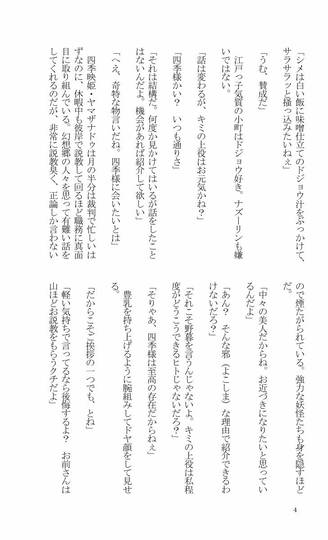 「シメは白い飯に味噌仕立てのドジョウ汁をぶっかけて、
サラサラッと掻っ込みたいねぇ」
「うむ、賛成だ」
江戸っ子気質の小町はドジョウ好き。ナズーリンも嫌
いではない。
「話は変わるが、キミの上役はお元気かね？」
「四季様かい？　いつも通りさ」
「それは結構だ。何度か見かけてはいるが話をしたこと
はないんだよ。機会があれば紹介して欲しい」
「へえ、奇特な物言いだねぇ。四季様に会いたいとは」
四季映姫・ヤマザナドゥは月の半分は裁判で忙しいは
ずなのに、休暇中も彼岸で説教して回るほど職務に真面
目に取り組んでいる。幻想郷の人々を思って有難い話を
してくれるのだが、非常に説教臭く、正論しか言わない
ので煙たがられている。強力な妖怪たちも身を隠すほど
だ。
「中々の美人だからね。お近づきになりたいと思ってい
るんだよ」
「あん？　そんな邪（よこしま）な理由で紹介できるわ
けないだろ？」
「それこそ野暮を言うんじゃないよ。キミの上役は私程
度がどうこうできるヒトじゃないだろ？」
「そりゃあ、四季様は至高の存在だからねぇ」
豊乳を持ち上げるように腕組みしてドヤ顔をして見せ
る。
「だからこそご挨拶の一つでも、とね」
「軽い気持ちで言ってるなら後悔するよ？　お前さんは
山ほどお説教をもらうクチだよ」
4